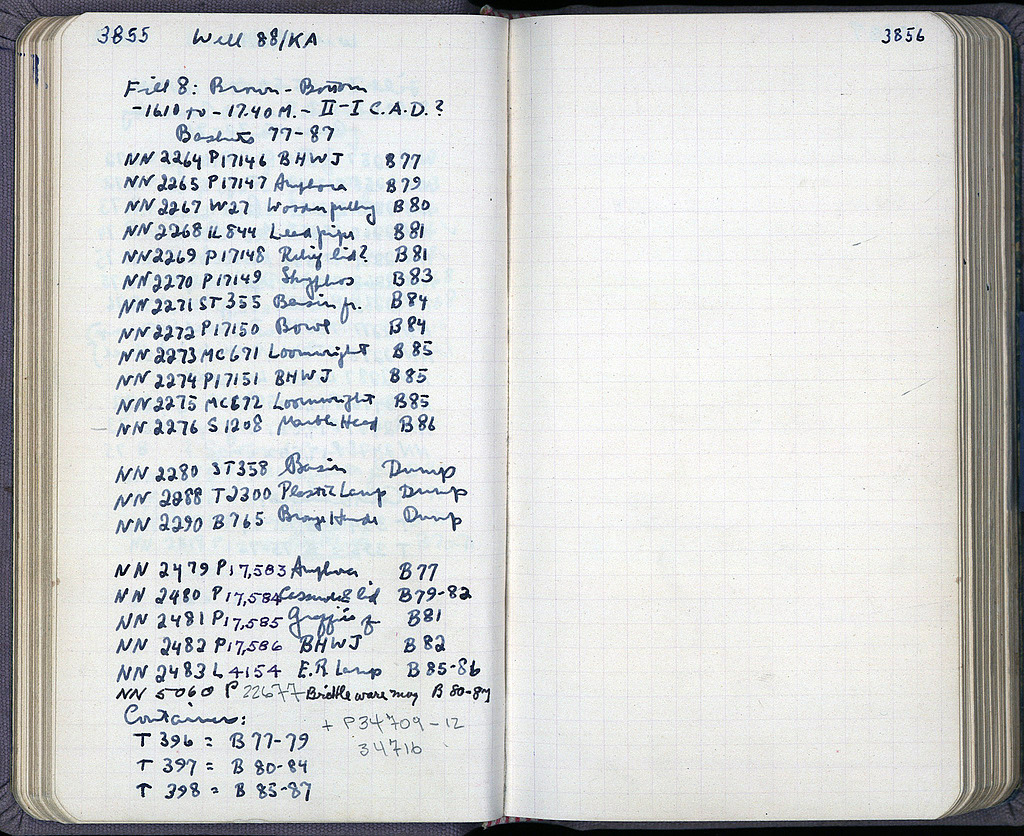 3855 Well 88/KA
Fill 8: Brown - Bottom
-16.10 to -17.40 M. - II-I C. A.D.?
Baskets 77-87
NN 2264 P17146 BHWJ B77
NN 2265 P17147 Amphora B79
NN 2267 W27 Wooden pulley B80
NN 2268 IL844 Lead pipe B81
NN 2269 P17148 Relief lid? B81
NN 2270 P17149 Skyphos B83
NN 2271 ST 355 Basin fr. B84
NN 2272 P17150 Bowl B84
NN 2273 MC671 Loomweight B85
NN 2274 P17151 BHWJ B85
NN 2275 MC672 Loomweight B85
NN 2276 S 1208 Marble Head B86
NN 2280 ST358 Basin Dump
NN 2288 T2300 Plastic Lamp Dump
NN 2290 B765 Bronze Dump
NN 2479 P17,583 Amphora B77
NN 2480 P17,584 Casserole lid B79-82
NN 2481 P17,585 Graffito fr B81
NN 2482 P17,586 BHWJ B82
NN 2483 L 4154 E.R Lamp B85-86
NN 5060 P 22677 Brittle ware mug B 80-87
Containers: + P34709-12
34716
T 396 = B77-79
T 397 = B 80-84
T 398 = B 85-87
3856